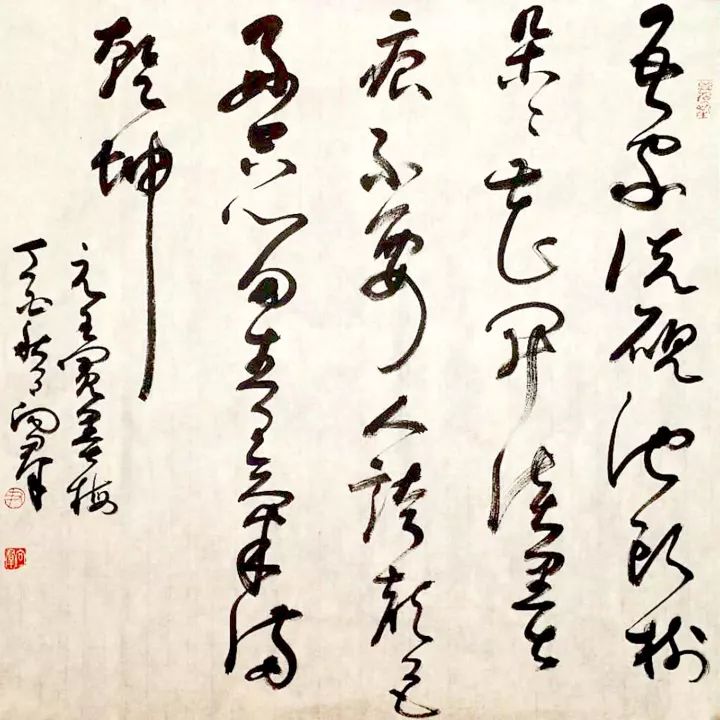 吾家洗硯池頭樹
朵々花開淡墨
痕不要人誇顏色
好只留清氣滿
乾坤
元王冕墨梅
丁酉秋月向群